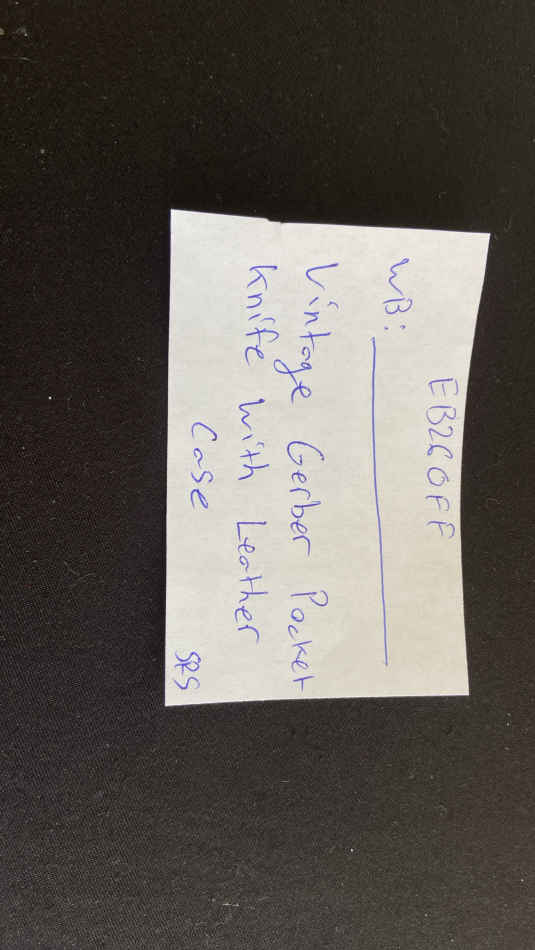 EB26OFF
WB:
Vintage Gerber Pocket
Knife with Leather
Case
SRS